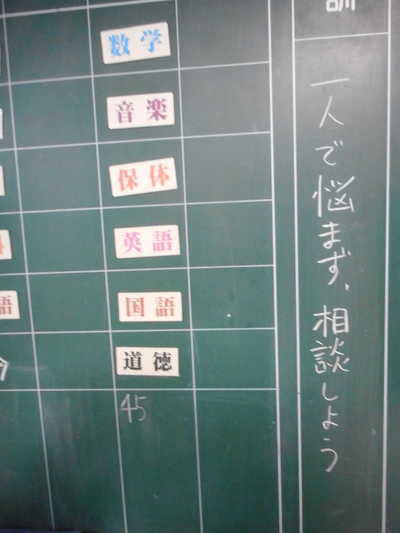 訓
一人で悩まず、相談しよう
数学
音楽
保体
英語
国語
道徳
45
語